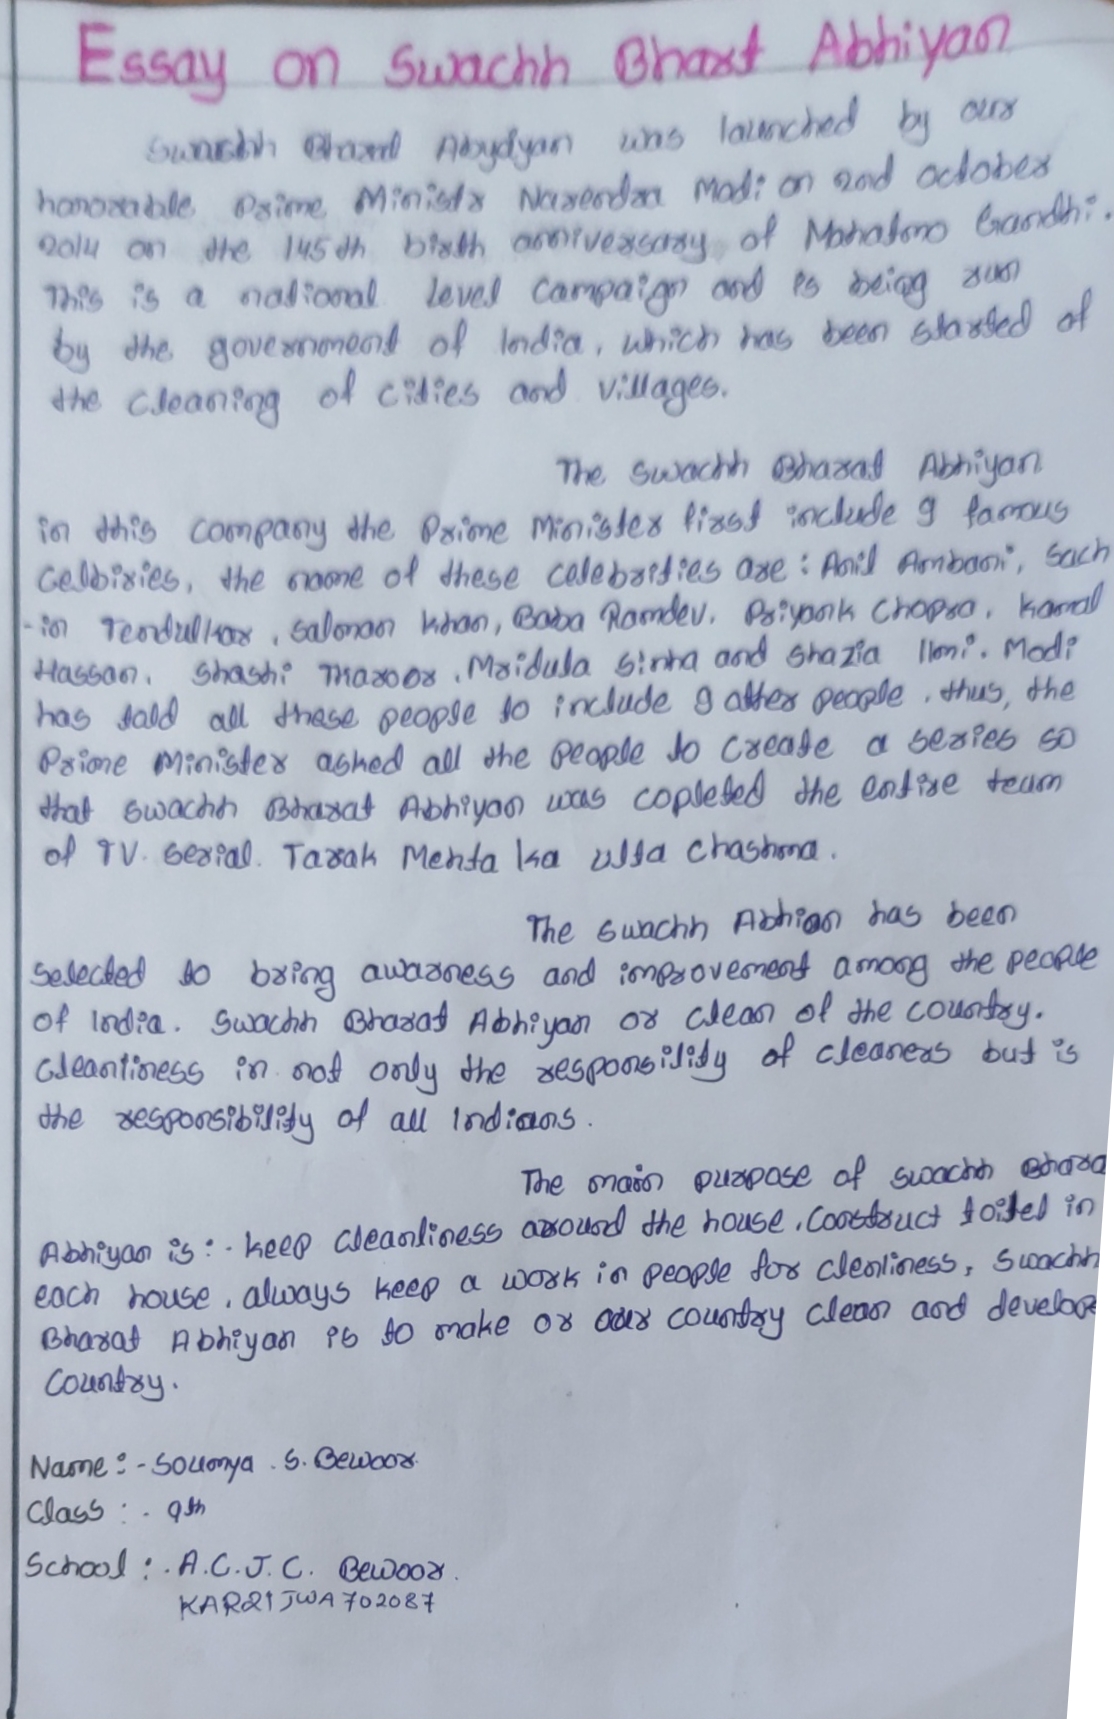 Essay on Swachh Bharat Abhiyan
Swachh Bharat Abydyan was launched by our
honorable Prime Ministr Narendra Modi on 2nd october
2014 on the 145th birth anniversary of Mahatma Gandhi.
This is a national level campaign and is being run
by the government of India, which has been started of
the cleaning of cities and villages.
The Swachh Bharat Abhiyan
in this company the Prime Minister first include 9 famous
Celbiries, the name of these celebrities are : Anil Ambani, Sach
-in Tendulkar, Salman Khan, Baba Ramdev. Priyank Chopra. Kamal
Hassan. Shashi Tharoor. Mridula Sinha and Shazia Ilmi. Modi
has told all these people to include 9 other people. thus, the
Prime Minister asked all the people to create a series so
that Swachh Bharat Abhiyan was copleted the entire team
of TV. Serial. Tarak Mehta ka ulta chashma.
The Swachh Abhian has been
selected to bring awarness and improvement among the people
of India. Swachh Bharat Abhiyan or clean of the country.
Cleanliness in not only the responsility of cleaners but is
the responsibility of all Indians.
The main purpose of Swachh Bhara
Abhiyan is :- keep cleanliness around the house. Construct toilet in
each house. always keep a work in people for clenliness, Swachh
Bharat Abhiyan is to make or our country clean and develop
Country.
Name :- Soumya . S. Bewoor.
Class : - 9th
School : - A.C.J.C. Bewoor.
KAR21JWA702087